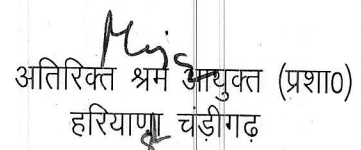 अतिरिक्त श्रम आयुक्त (प्रशा0)
हरियाणा चंड़ीगढ़